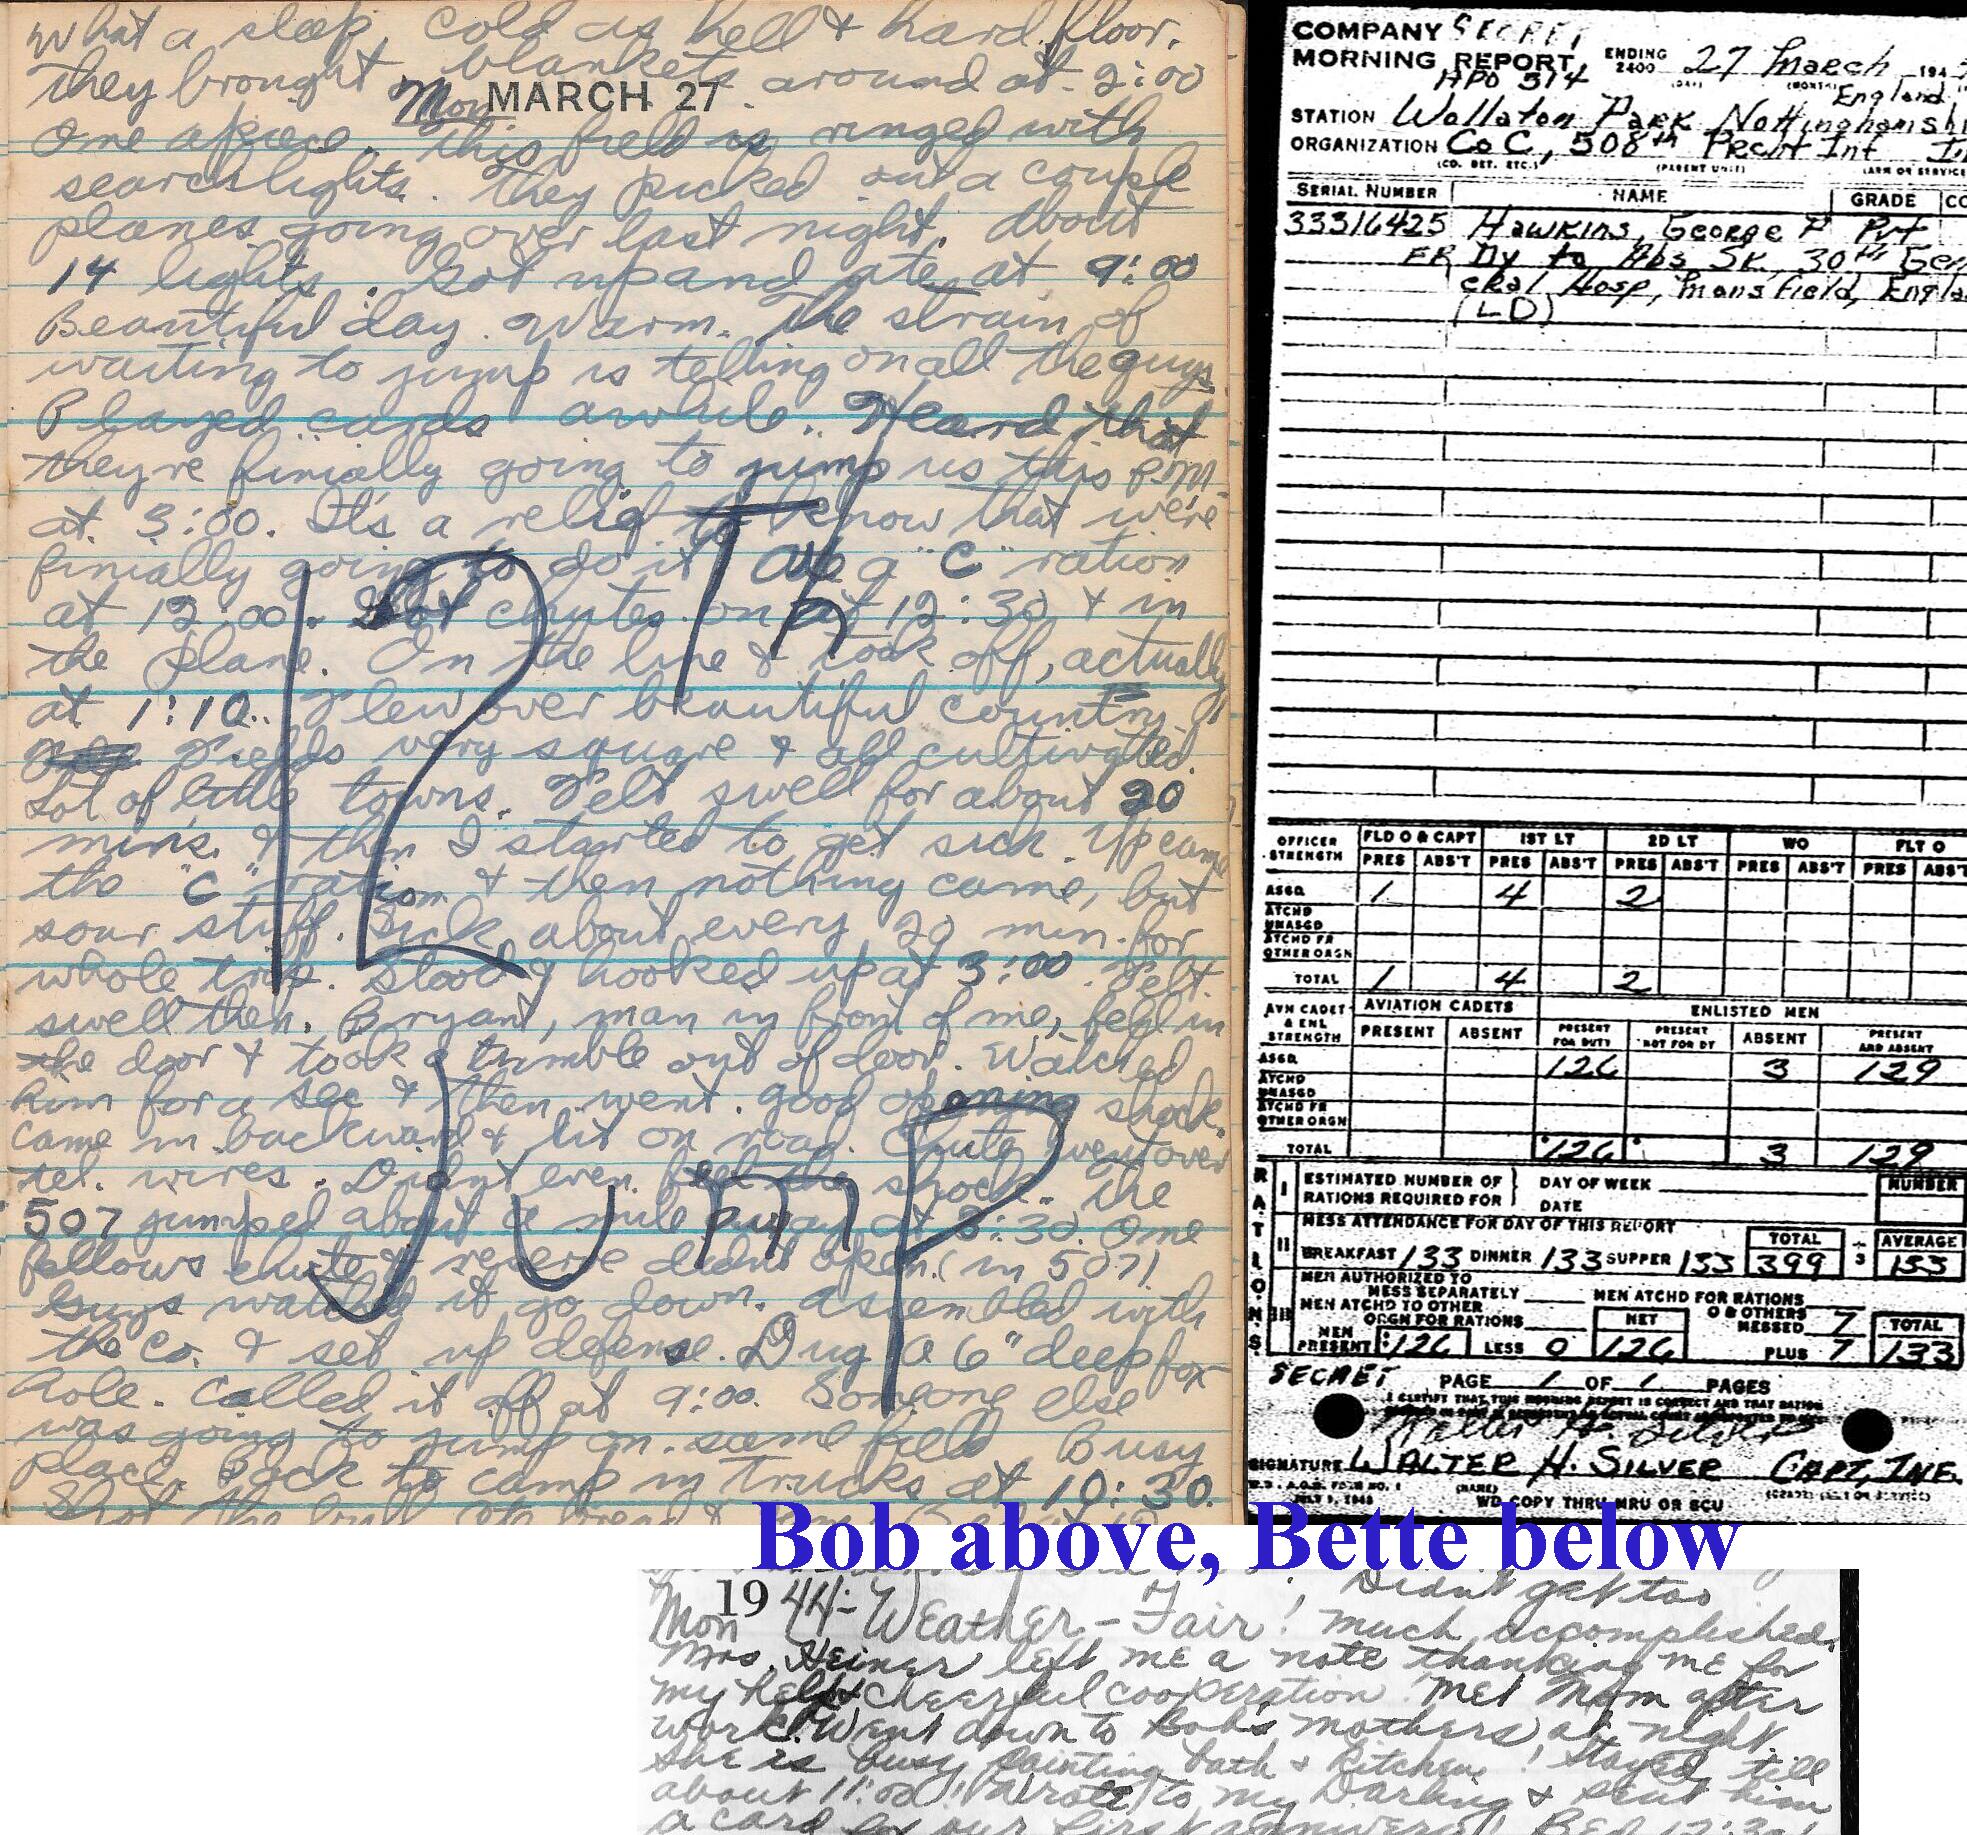 What a sleep, cold as hell & hard floor.
They brought blankets around at 2:00
Mon MARCH 27
One apiece. This field is ringed with
searchlights. They picked out a couple
planes going over last night. About
14 lights. Got up and ate at 9:00
Beautiful day. Warm. The strain of
waiting to jump is telling on all the guys
Played cards awhile. Heard that
they're finially going to jump us this P.M.
at 3:00. It's a relief to know that we're
finially going to do it. Ate a "C" ration
at 12:00. Got chutes on at 12:30 & in
the plane. On the line & took off, actually
at 1:10. Flew over beautiful country.
Fields very square & all cultivated.
Lot of little towns. Felt swell for about 20
mins. & then I started to get sick. Up came
the "C" ration & then nothing came, but
sour stuff. Sick about every 20 min. for
whole trip. Stood & hooked up at 3:00. Felt
swell then. Bryant, man in front of me, fell in
the door & took a tumble out of door. Watched
him for a sec & then went. Good opening shock.
Came in backward & lit on road. Chute went over
tel. wires. Didn't even feel the shock. The
507 jumped about a mile away at 3:30. One
fellows chute & reserve didn't open. (in 507)
Guys watched it go down. Assembled with
the Co. & set up defense. Dug a 6" deep fox
hole. Called it off at 9:00. Someone else
was going to jump on same field. Busy
place. Back to camp in trucks at 10:30.
12 Th
JUmP
COMPANY SECRET
MORNING REPORT ENDING 2400 27 March 194
APO 514 (DAY) (MONTH) England
STATION Wollaton Park Nottinghamshi
ORGANIZATION Co C, 508th Prcht Inf
(CO. DET. ETC.) (PARENT UNIT) (ARM OR SERVICE
SERIAL NUMBER NAME GRADE CO
33316425 Hawkins, George P Pvt
FR Dy to Abs Sk, 30th Gen
eral Hosp, Mansfield, Engla
(LD)
OFFICER STRENGTH FLD O & CAPT 1ST LT 2D LT WO FLT O
PRES ABS'T PRES ABS'T PRES ABS'T PRES ABS'T PRES ABS'T
ASGD 1 4 2
ATCHD UNASGD
ATCHD FR OTHER ORGN
TOTAL 1 4 2
AVN CADET & ENL STRENGTH AVIATION CADETS ENLISTED MEN
PRESENT ABSENT PRESENT FOR DUTY PRESENT NOT FOR DY ABSENT PRESENT AND ABSENT
ASGD 126 3 129
ATCHD UNASGD
ATCHD FR OTHER ORGN
TOTAL 126 3 129
RATIONS
I ESTIMATED NUMBER OF RATIONS REQUIRED FOR DAY OF WEEK DATE NUMBER
II MESS ATTENDANCE FOR DAY OF THIS REPORT TOTAL AVERAGE
BREAKFAST 133 DINNER 133 SUPPER 133 399 ÷ 3 133
III MEN AUTHORIZED TO MESS SEPARATELY MEN ATCHD FOR RATIONS
MEN ATCHD TO OTHER ORGN FOR RATIONS NET O & OTHERS MESSED 7 TOTAL
MEN PRESENT 126 LESS 0 126 PLUS 7 133
SECRET PAGE 1 OF 1 PAGES
I CERTIFY THAT THIS MORNING REPORT IS CORRECT AND THAT RATION
Walter H. Silver
SIGNATURE WALTER H. SILVER CAPT, INF.
W.D., A.G.O. FORM NO. 1 (NAME)
JULY 1, 1943 WD COPY THRU MRU OR SCU
Bob above, Bette below
1944- Weather - Fair! Didn't get too
Mon much accomplished.
Mrs. Heiner left me a note thanking me for
my help & cheerful cooperation. Met Mom after
work. Went down to Bob's mothers at night.
She is busy painting bath & kitchen! Stayed till
about 11:00! Wrote to my Darling & sent him
a card for our first annivers! Bed 12:30!